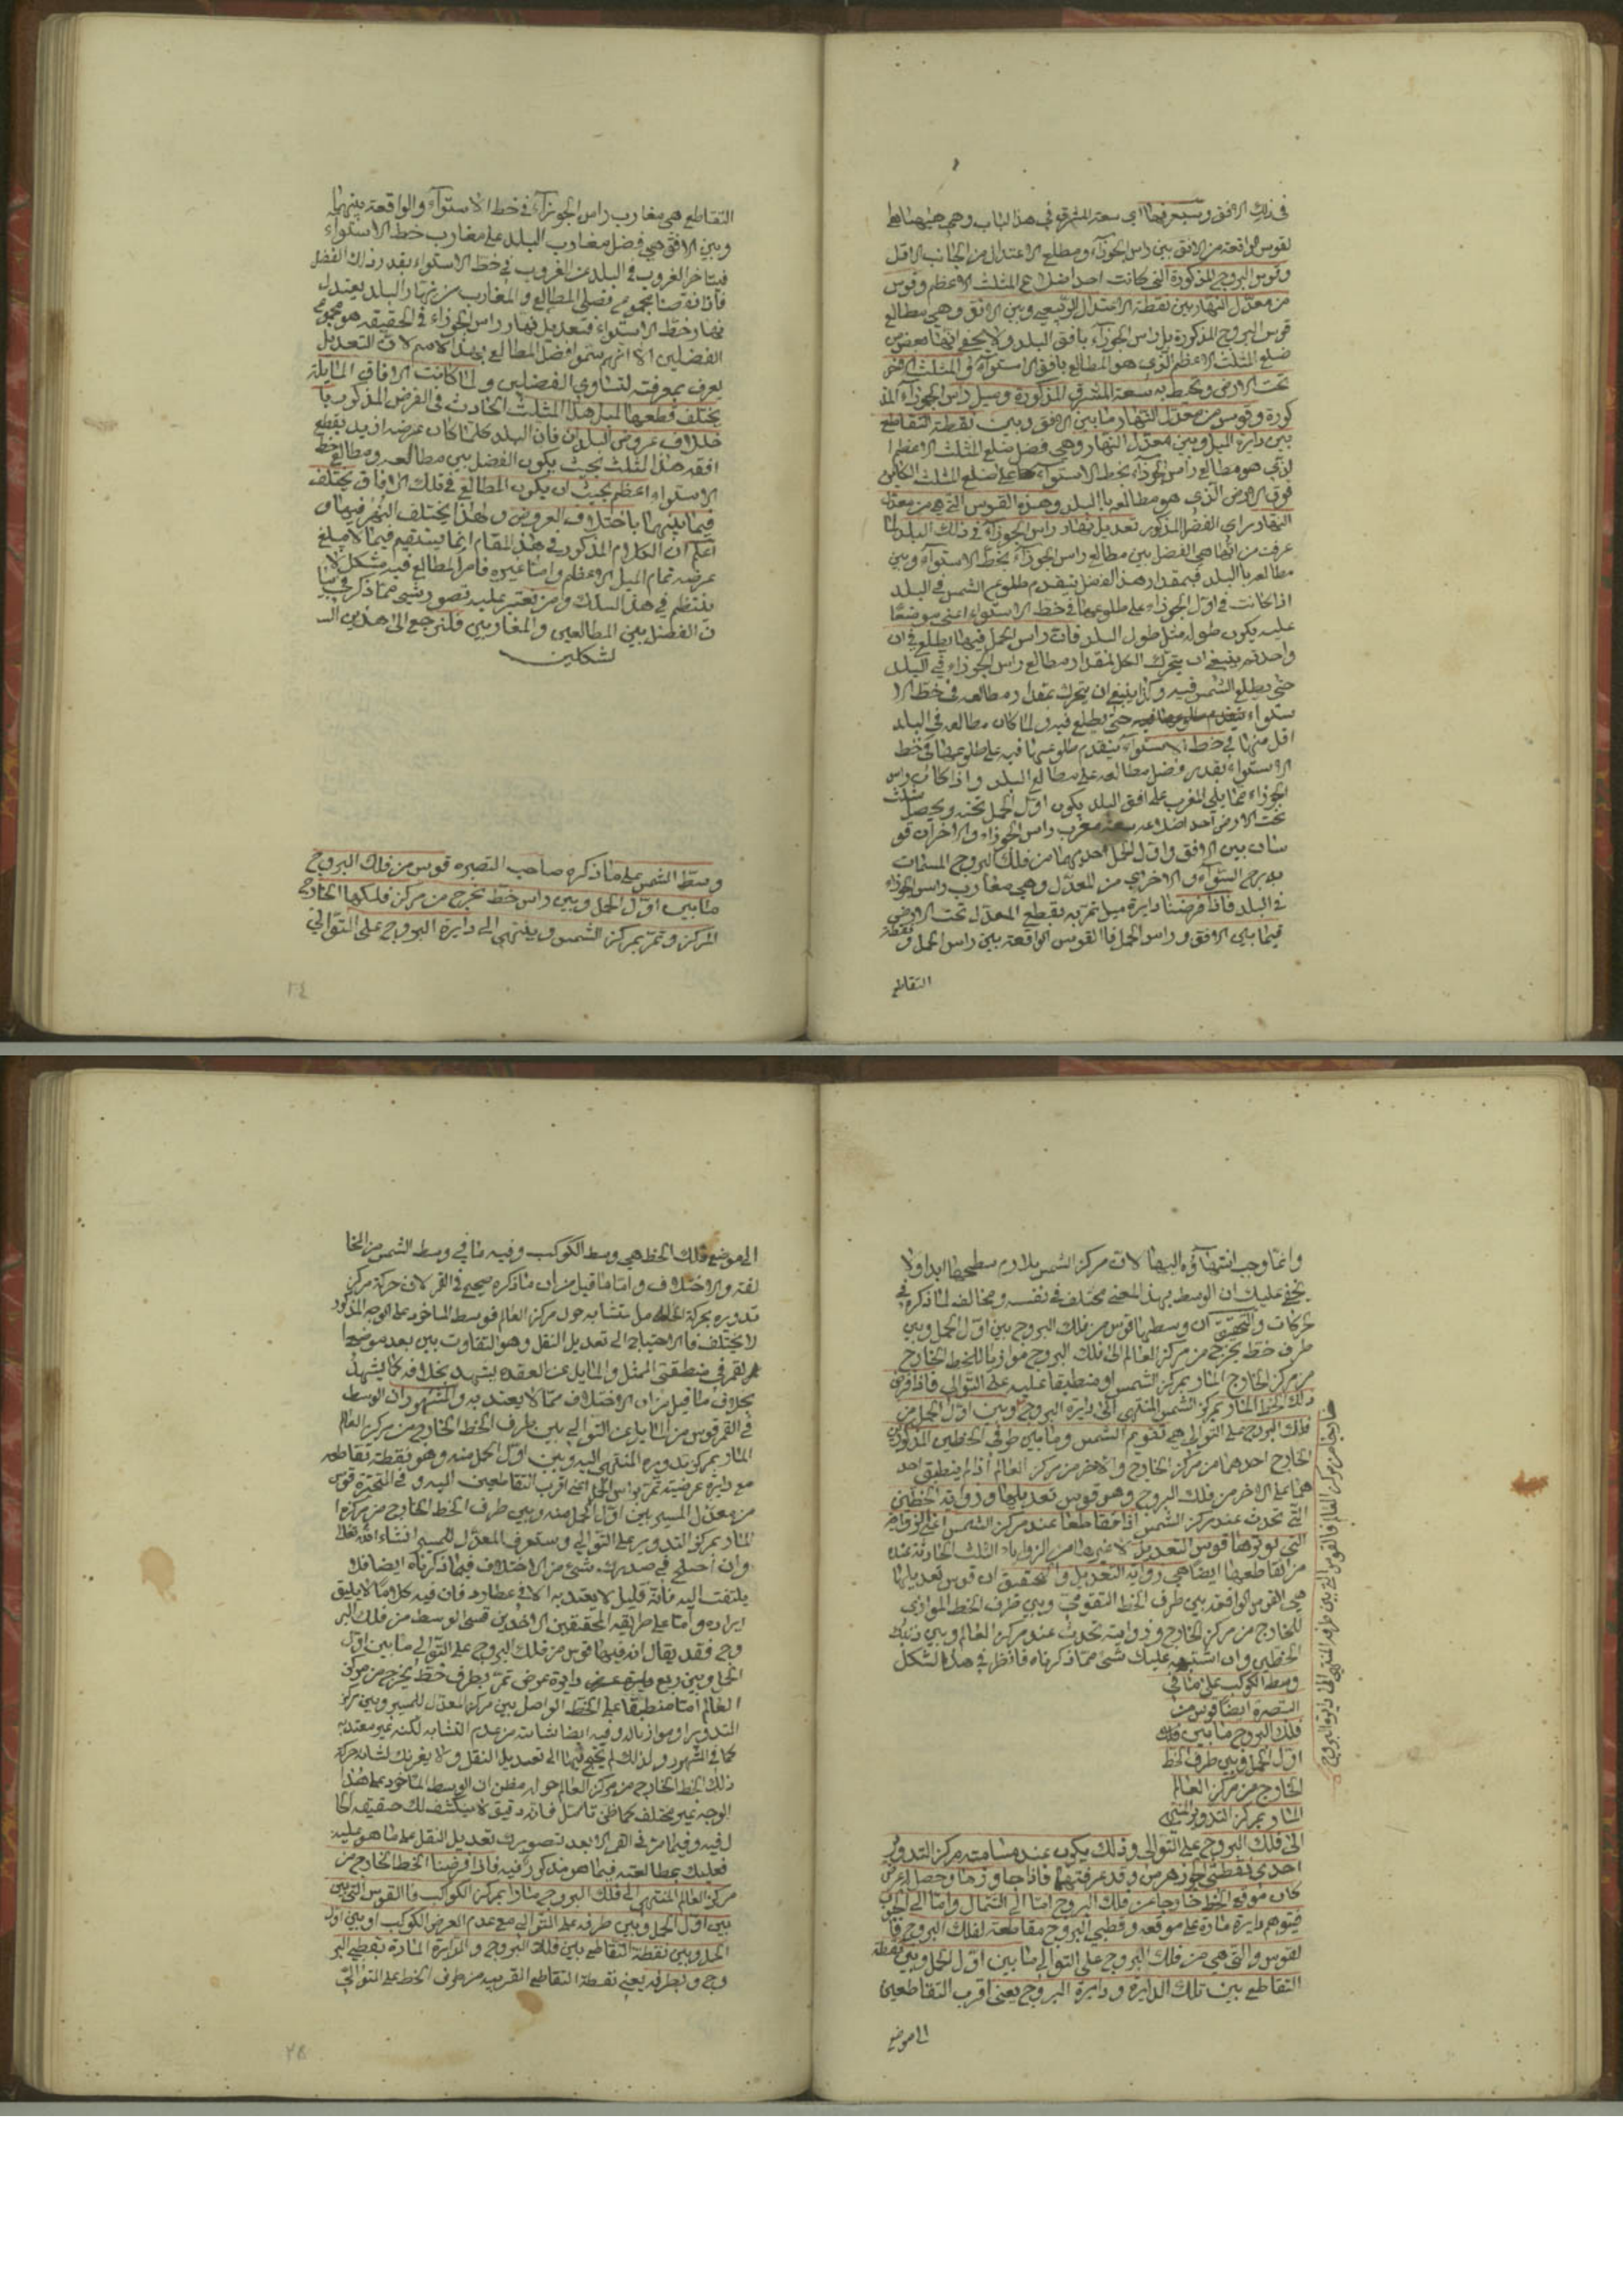 في ذلك الافق وسيعرفها اي سعة المشرق في هذا الباب وهي ههنا
لقوس الواقعة من الافق بين راس الجوزاء ومطلع الاعتدال من الجانب الاقل
وقوس البروج المذكورة التي كانت احد اضلاع المثلث الاعظم وقوس
من معدل النهار بين نقطة الاعتدال الربيعي وبين الافق وهي مطالع
قوس البروج المذكورة بل راس الجوزاء بافق البلد ولا يخفى انها بعض من
ضلع المثلث الاعظم الذي هو المطالع بافق الاستواء وفي المثلث الاخر
تحت الارض ويحيط به سعة المشرق المذكورة وميل راس الجوزاء المذ
كورة وقوس من معدل النهار ما بين الافق وبين نقطة التقاطع
بين دايرة الميل وبين معدل النهار وهي فضل ضلع المثلث الاعظم ا
لذي هو مطالع راس الجوزاء بخط الاستواء على ضلع المثلث الكاين
فوق الارض الذي هو مطالعه بالبلد وهذه القوس التي هي من معدل
النهار اي الفضل المذكور تعديل نهار راس الجوزاء في ذلك البلد لما
عرفت من انها هي الفضل بين مطالع راس الجوزاء بخط الاستواء وبين
مطالعه بالبلد فبمقدار هذا الفضل يتقدم طلوع الشمس في البلد
اذا كانت في اول الجوزاء على طلوعها في خط الاستواء اعني موضعا
عليه يكون طوله مثل طول البلد فان راس الحمل فيهما يطلع في ان
واحد ثم ينبغي ان يتحرك الكل لمقدار مطالع راس الجوزاء في البلد
حتى يطلع الشمس فيه وكذا ينبغي ان يتحرك بمقدار مطالعه في خط الا
ستواء حتى يطلع فيه ولما كان مطالعه في البلد
اقل منها في خط الاستواء يتقدم طلوعها فيه على طلوعها في خط
الاستواء بقدر فضل مطالعه على مطالع البلد واذا كان راس
الجوزاء مما يلي المغرب على افق البلد يكون اول الحمل تحته ويحصل مثلث
تحت الارض احد اضلاعه سعة مغرب راس الجوزاء والاخران قو
سان بين الافق واول الحمل احديهما من فلك البروج المسمات
بدرج السواء والاخرى من المعدل وهي مغارب راس الجوزاء
في البلد فاذا فرضنا دايرة ميل تمر به يقطع المعدل تحت الارض
فيما بين الافق وراس الحمل فالقوس الواقعة بين راس الحمل ونقطة
التقاطع
التقاطع هي مغارب راس الجوزاء في خط الاستواء والواقعة بينهما
وبين الافق هي فضل مغارب البلد على مغارب خط الاستواء
فيتاخر الغروب في البلد عن الغروب في خط الاستواء بقدر ذلك الفضل
فاذا نقصنا مجموع فضلي المطالع والمغارب من نهار البلد يعتدل
نهار خط الاستواء فتعديل نهار راس الجوزاء في الحقيقة هو مجموع
الفضلين الا انهم سموا فضل المطالع بهذا الاسم لان التعديل
يعرف بمعرفته لتساوي الفضلين ولما كانت الافاق المايلة
يختلف قطعها لمثل هذا المثلث الحادث في الفرض المذكور با
ختلاف عروض البلدان فان البلد كلما كان عرضه ازيد يقطع
افقه هذا المثلث بحيث يكون الفضل بين مطالعه ومطالع خط
الاستواء اعظم بحيث ان يكون المطالع في تلك الافاق يختلف
فيما بينهما باختلاف العروض ولهذا يختلف النهر فيها و
اعلم ان الكلام المذكور في هذا المقام انما يستقيم فيما لا يبلغ
عرضه تمام الميل الاعظم واما غيره فامر المطالع فيه مشكل لا
ينتظم في هذا السلك ومن تعسر عليه تصور شيء مما ذكر في بيا
ن الفضل بين المطالعين والمغاربين فليرجع الى هذين الـ
لشكلين
وسط الشمس على ما ذكره صاحب التبصرة قوس من فلك البروج
ما بين اول الحمل وبين راس خط تخرج من مركز فلكها الخارج
المركز وتمر بمركز الشمس وينتهي الى دايرة البروج على التوالي
٢٤
وانما وجب انتهاؤه اليها لان مركز الشمس يلازم سطحها ابدا ولا
يخفى عليك ان الوسط بهذا المعنى مختلف في نفسه ومخالف لما ذكره في
حركات والتحقيق ان وسطها قوس من فلك البروج بين اول الحمل وبين
طرف خط يخرج من مركز العالم الى فلك البروج موازيا للخط الخارج
من مركز الخارج المار بمركز الشمس او منطبقا عليه على التوالي فاذا فرض
ذلك الخط المار بمركز الشمس المنتهي الى دايرة البروج وبين اول الحمل من
فلك البروج على التوالي هي تقويم الشمس وما بين طرفي الخطين المذكورين
الخارج احدهما من مركز الخارج والاخر من مركز العالم اذا لم ينطبق احد
هما على الاخر من فلك البروج وهو قوس تعديلها وزواية الخطين
التي تحدث عند مركز الشمس اذا تقاطعا عند مركز الشمس
التي توترها قوس التعديل لا غيرها من الزوايا الثلث الحادثة عنده
من تقاطعهما ايضا هي زواية التعديل والتحقيق ان قوس تعديلها
هي القوس الواقعة بين طرف الخط التقويمي وبين طرف الخط الموازي
للخارج من مركز الخارج وزوايته تحدث عند مركز العالم وبين ذينك
الخطين وان اشتبه عليك شيء مما ذكرناه فانظر في هذا الشكل
وسط الكوكب على ما في
التبصرة ايضا قوس من
فلك البروج ما بين
اول الحمل وبين طرف الخط
الخارج من مركز العالم
المار بمركز التدوير المنتهي
الى فلك البروج على التوالي وذلك يكون عند مسامتة مركز التدوير
احدى نقطتي الجوزهرين وقد عرفتهما فاذا جاوزها وحصل
كان موقع الخط خارجا عن فلك البروج اما الى الشمال واما الى الجنوب
فيتوهم دايرة مارة على موقعه وقطبي البروج مقاطعة لفلك البروج فا
لقوس والتي هي من فلك البروج على التوالي ما بين اول الحمل وبين نقطة
التقاطع بين تلك الدايرة ودايرة البروج يعني اقرب التقاطعين
الى موضع
خارجا من مركز العالم فالقوس التي بين طرفه المنتهي الى دايرة البروج
الى موضع ذلك الخط هي وسط الكوكب وفيه ما في وسط الشمس من المخا
لفة والاختلاف واما ما قيل من ان ما ذكره صحيح في القمر لان حركة مركز
تدويره بحركة الحامل متشابه حول مركز العالم فوسط الماخوذ على الوجه المذكور
لا يختلف فالاحتياج الى تعديل النقل وهو التفاوت بين بعد موضع
القمر في منطقتي الممثل والمايل عن العقدة يشهد بخلافه كما يشهد
بخلاف ما قيل من ان الاختلاف مما لا يعتد به والمشهور ان الوسط
في القمر قوس من المايل على التوالي بين طرف الخط الخارج من مركز العالم
المار بمركز تدويره المنتهي اليه وبين اول الحمل منه وهو نقطة تقاطعه
مع دايرة عرضية تمر براس الحمل اعني اقرب التقاطعين اليه وفي المتحيرة قوس
من معدل المسير بين اول الحمل منه وبين طرف الخط الخارج من مركزه ا
لمار بمركز التدوير على التوالي وستعرف المعدل للمسير انشاء الله تعالى
وان اختلج في صدرك شيء من الاختلاف فيما ذكرناه ايضا فلا
يلتفت اليه فانه قليل لا يعتد به الا في عطارد فان فيه كلاما لا يليق
ايراده واما على طريقة المحققين الاخذين قسي الوسط من فلك البر
وج فقد يقال انه فيها قوس من فلك البروج على التوالي ما بين اول
الحمل وبين ربع دايرة عرض تمر بطرف خط يخرج من مركز
العالم اما منطبقا على الخط الواصل بين مركز المعدل للمسير وبين مركز
التدوير او موازيا له وفيه ايضا شائبة من عدم التشابه لكنه غير معتد به
كما في المشهور ولذلك لم يحتج فيها الى تعديل النقل ولا يغرنك تشابه حركة
ذلك الخط الخارج من مركز العالم حوله فتظن ان الوسط الماخوذ على هذا
الوجه غير مختلف كما ظن تامل فانه دقيق لا ينكشف لك حقيقة الحا
ل فيه وفيما مر في القمر الا بعد تصورك تعديل النقل على ما هو عليه
فعليك بمطالعته فيما هو مذكور فيه فاذا فرضنا الخط الخارج من
مركز العالم المنتهي الى فلك البروج مارا بمركز الكواكب فالقوس التي بين
بين اول الحمل وبين طرفه على التوالي مع عدم العرض للكوكب او بين اول
الحمل وبين نقطة التقاطع بين فلك البروج والدايرة المارة بقطبي البر
وج وبطرفه يعني نقطة التقاطع القريبة من طرف الخط على التوالي
٢٥